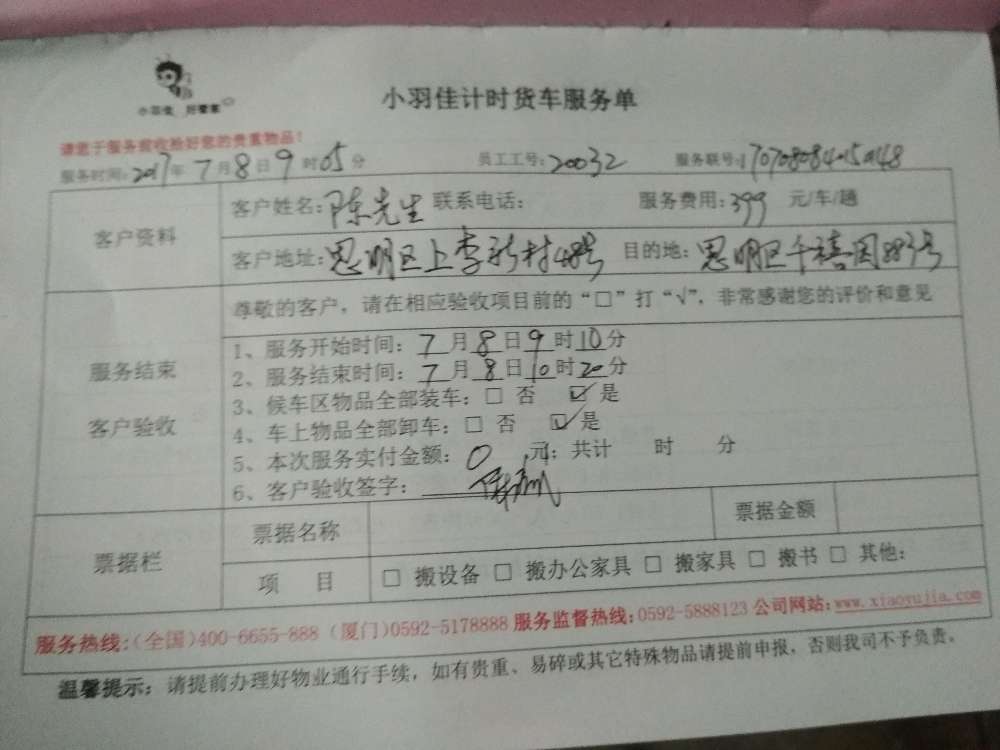 小羽佳 好管家
小羽佳计时货车服务单
请您于服务前收捡好您的贵重物品!
服务时间:2017年7月8日9时05分 员工工号:20032 服务联号:
客户资料 客户姓名:陈先生 联系电话: 服务费用:399 元/车/趟
客户地址:思明区上李新村48号 目的地:思明区千禧园883号
尊敬的客户，请在相应验收项目前的“□”打“√”，非常感谢您的评价和意见
服务结束
客户验收
1、服务开始时间:7月8日9时10分
2、服务结束时间:7月8日10时20分
3、候车区物品全部装车:□ 否 ☑ 是
4、车上物品全部卸车:□ 否 ☑ 是
5、本次服务实付金额:0 元；共计 时 分
6、客户验收签字:
票据栏 票据名称 票据金额
项 目 □ 搬设备 □ 搬办公家具 □ 搬家具 □ 搬书 □ 其他:
服务热线:(全国)400-6655-888 (厦门)0592-5178888 服务监督热线:0592-5888123 公司网站:www.xiaoyujia.com
温馨提示: 请提前办理好物业通行手续，如有贵重、易碎或其它特殊物品请提前申报，否则我司不予负责。